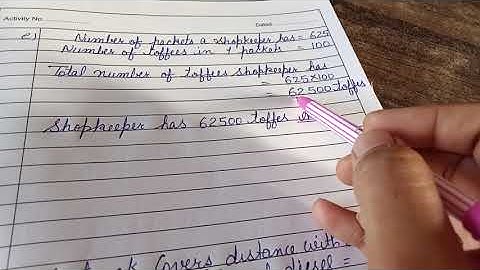 Activity No.
Dated
Number of packets a shopkeeper has = 625
Number of toffees in 1 packet = 100
Total number of toffees shopkeeper has
= 625×100
= 62500 toffes
Shopkeeper has 62500 toffes
Covers distance with
diesel =